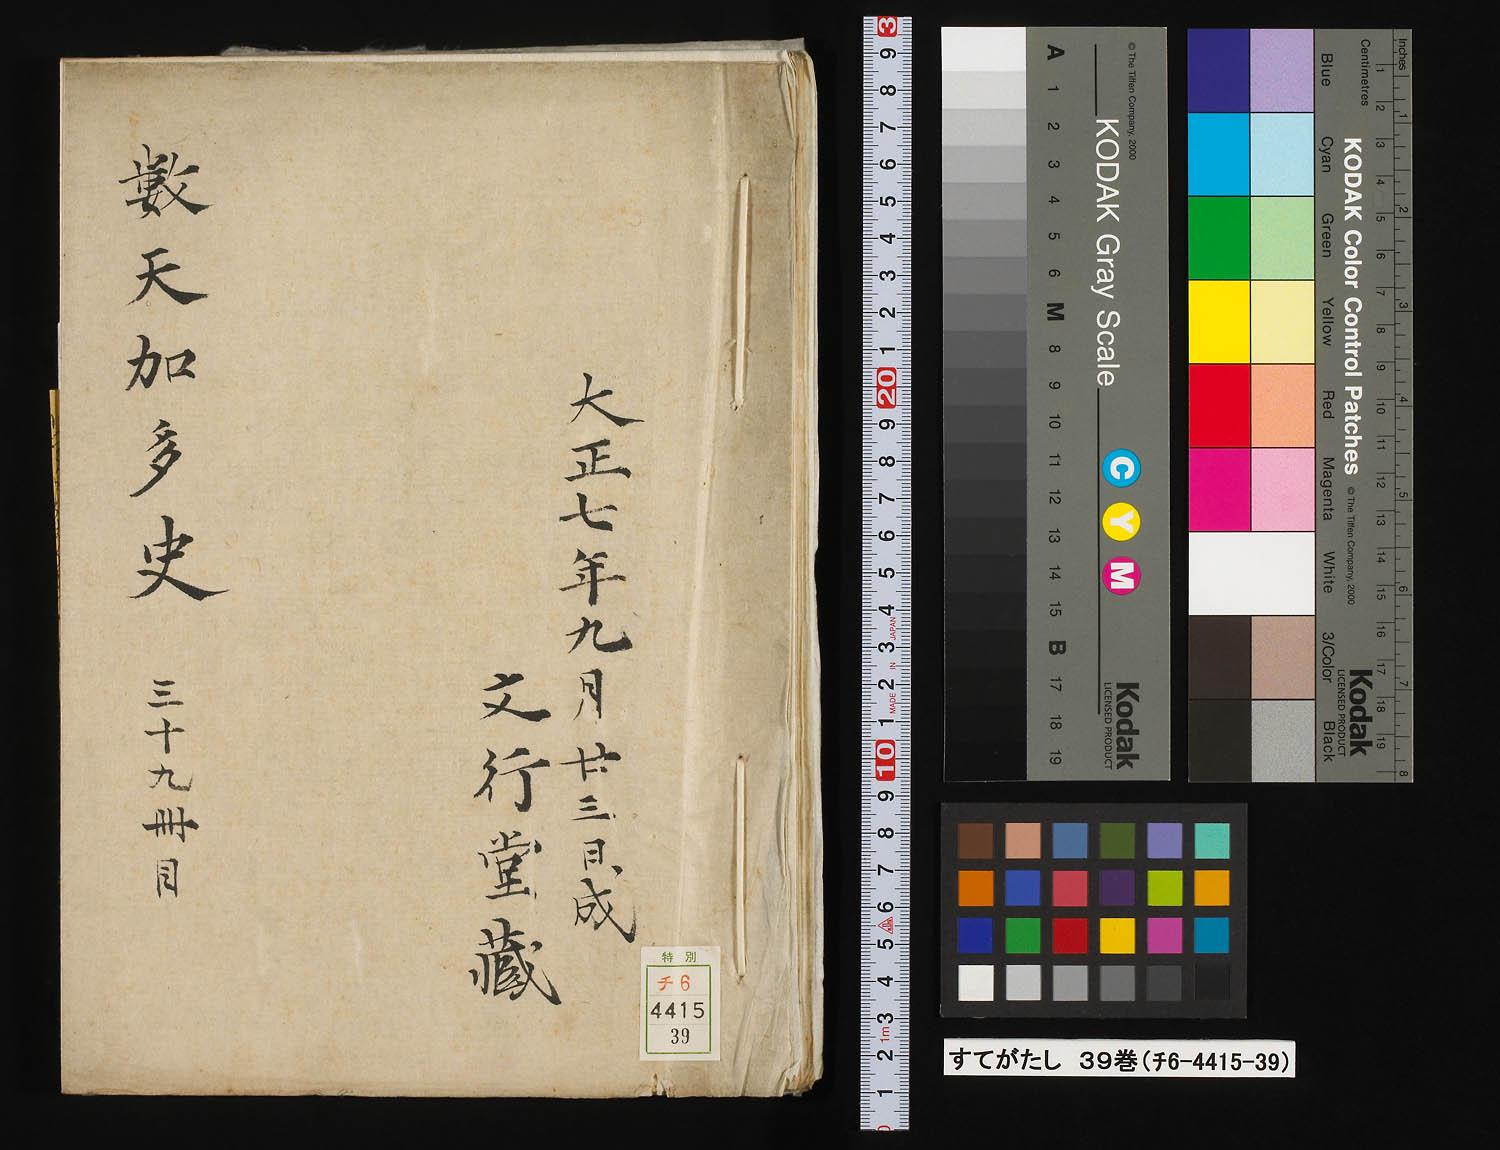 大正七年九月廿三日成
文行堂藏
數天加多史 三十九冊目
特別
チ6
4415
39
3 9 8 7 6 5 4 3 2 1 20 9 8 7 6 5 4 3 2 1 10 9 8 7 6 5 4 3 2 1
MADE IN JAPAN
1m
© The Tiffen Company, 2000
KODAK Gray Scale
C Y M
Kodak
LICENSED PRODUCT
A 1 2 3 4 5 6 M 8 9 10 11 12 13 14 15 B 17 18 19
Inches
1 2 3 4 5 6 7 8
Centimetres
1 2 3 4 5 6 7 8 9 10 11 12 13 14 15 16 17 18 19
KODAK Color Control Patches
© The Tiffen Company, 2000
Kodak
LICENSED PRODUCT
Blue Cyan Green Yellow Red Magenta White 3/Color Black
すてがたし 39巻(チ6-4415-39)